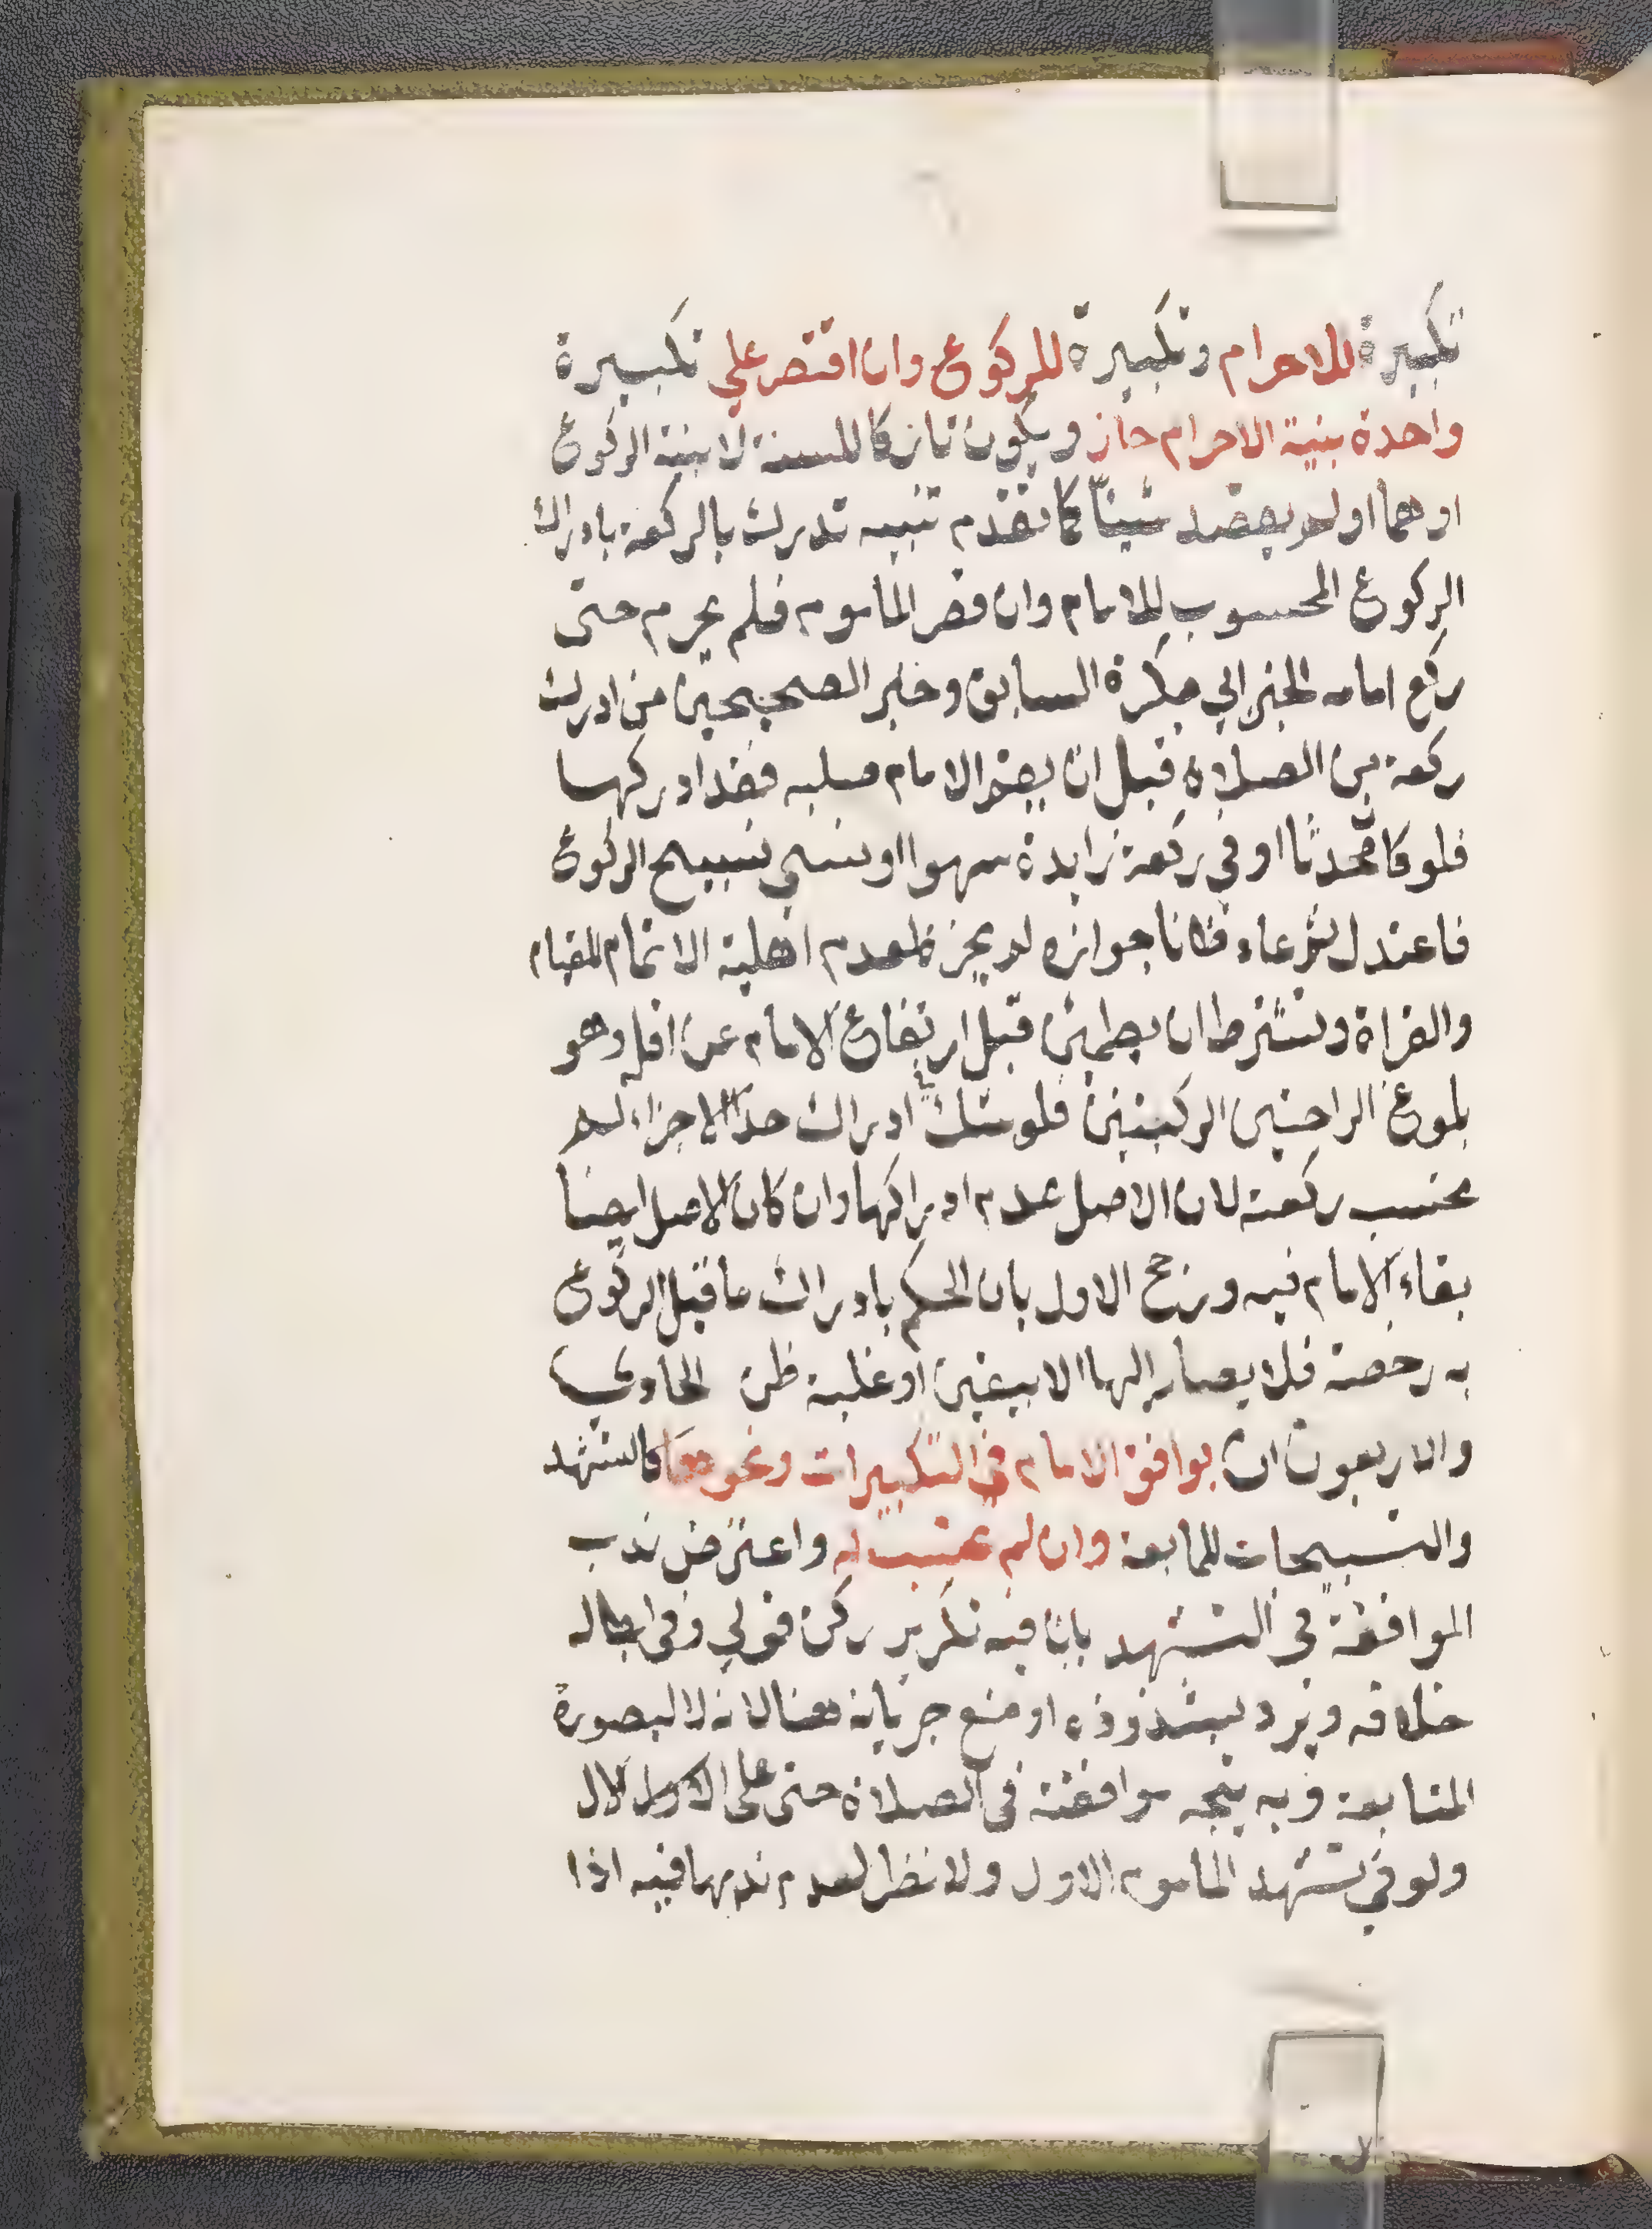 تكبيرة للاحرام وتكبيرة للركوع وان اقتصر علي تكبيرة
واحدة بنية الاحرام جاز ويكون تاركا للسنة لا بنية الركوع
اوهما اولم يقصد شيئا كما تقدم تنبيه تدرك بالركعة بادراك
الركوع المحسوب للامام وان قصر الماموم فلم يحرم حتى
ركع امامه لخبر ابي بكرة السابق وخبر الصحيحين من ادرك
ركعة من الصلاة قبل ان يقيم الامام صلبه فقد ادركها
فلو كان محدثا او في ركعة زايدة سهوا اونسي تسبيح الركوع
فاعتدل ثم عاد ظانا جوازه لم يجز لعدم اهلية الاتمام للقيام
والقراة ويشترط ان يطمئن قبل ارتفاع الامام عن اقله وهو
بلوغ الراحتين الركبتين فلو شك ادراك حد الاجزاء لم
تحتسب ركعته لان الاصل عدم ادراكها وان كان الاصل ايضا
بقاء الامام فيه ورجح الاول بان الحكم بادراك ما قبل الركوع
به رخصة فلا يصار اليها الا بيقين او غلبة ظن الحادي
والاربعون ان يوافق الامام في التكبيرات ونحوها كالتشهد
والتسبيحات للمتابعة وان لم تحتسب له واعترض ندب
الموافقة في التشهد بان فيه تكرير ركن قولي وفي ابطاله
خلافه ويرد بشذوذه او منع جريانه هنا لانه لا لبصورة
المتابعة وبه يتجه موافقته في الصلاة حتى على الال
ولو في تشهد الماموم الاول ولا نظر لعدم ندبها فيه اذا